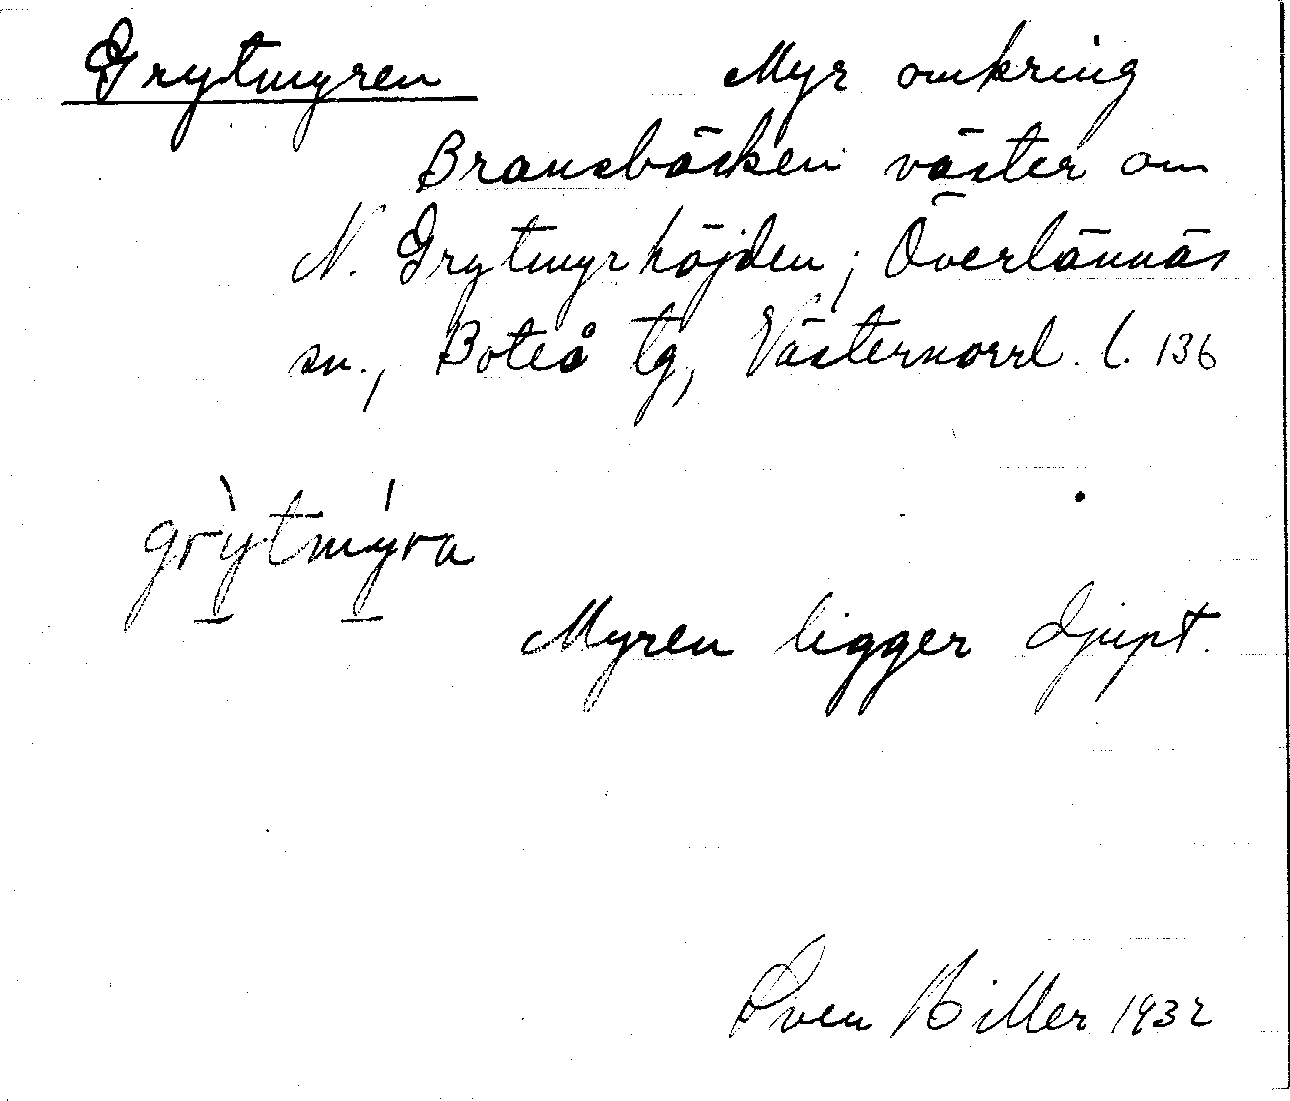 Grytmyren Myr omkring
Bransbäcken väster om
N. Grytmyrhöjden; Överlännäs
sn., Boteå tg, Västernorrl. l. 136
grỳtmýra
Myren ligger djupt.
Sven Hiller 1932